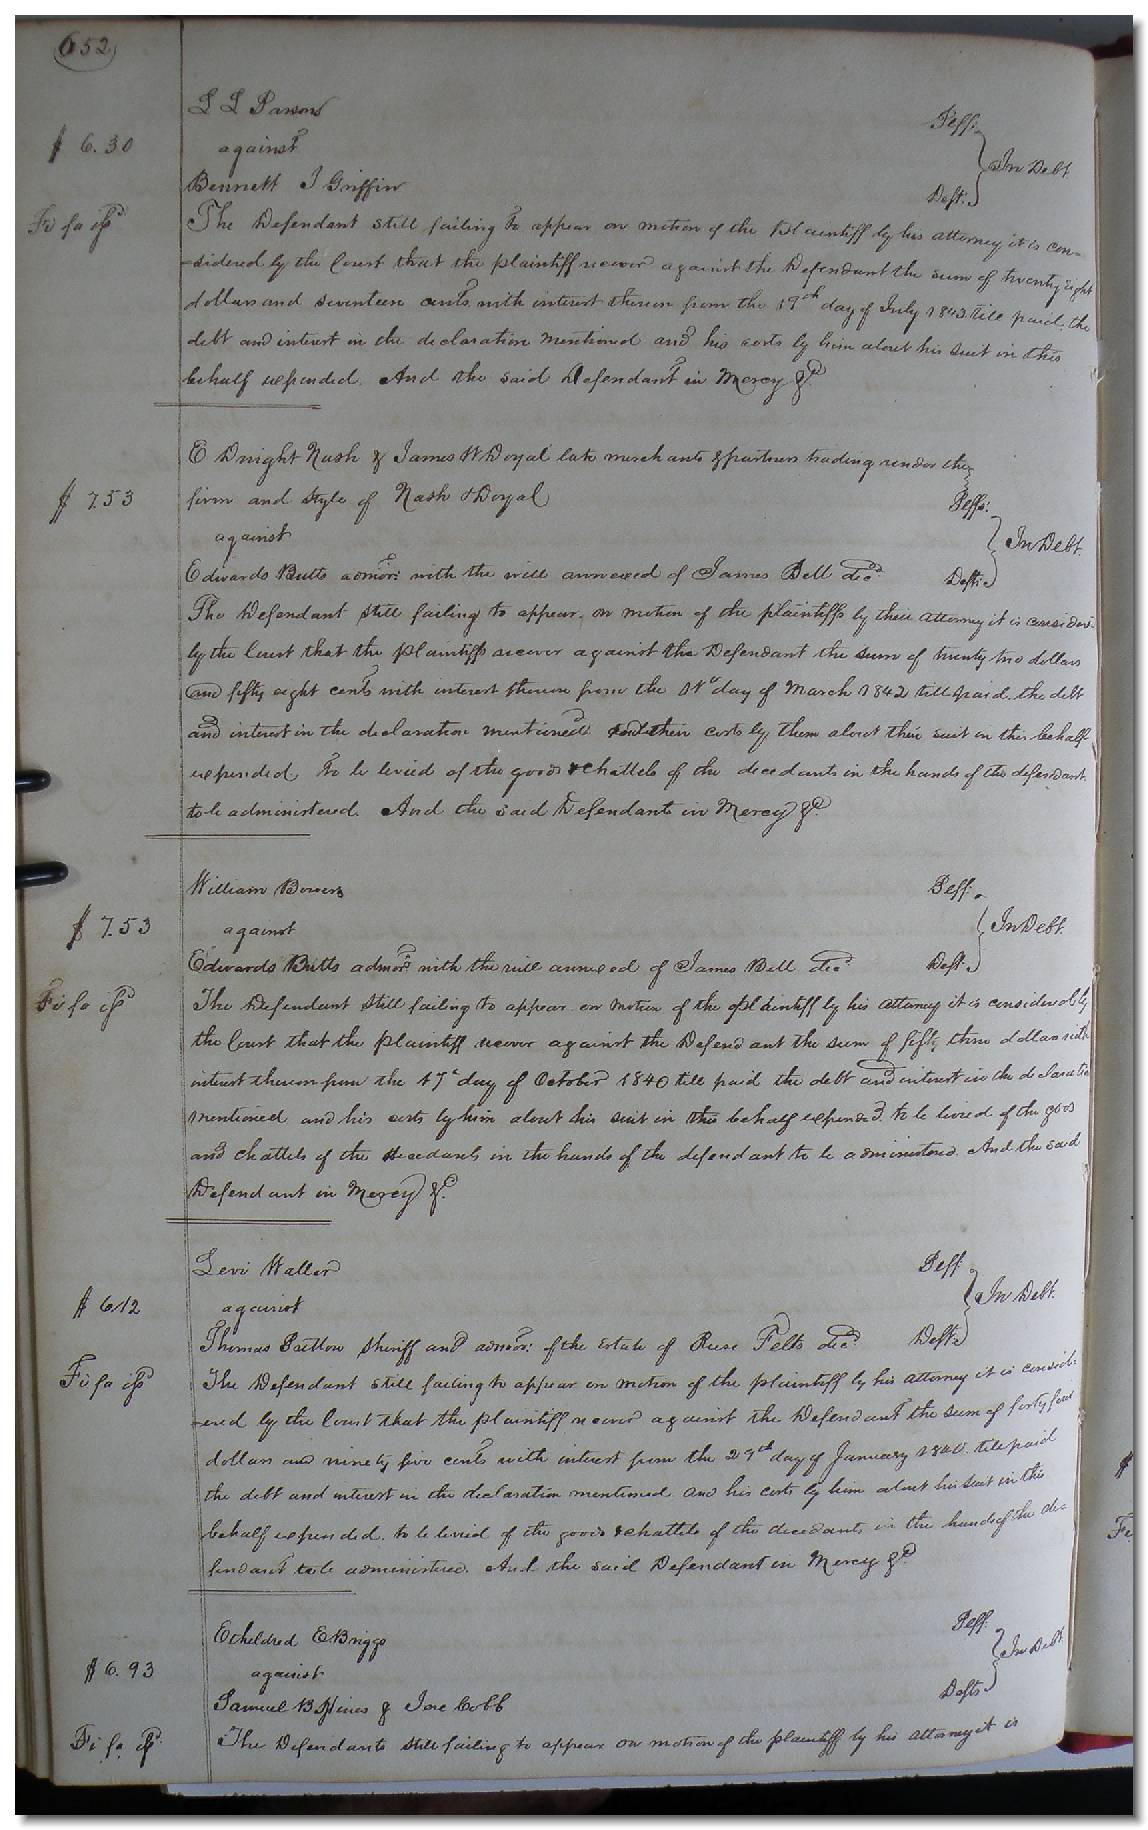 652
L L Parsons Plff.
$ 6.30 against In Debt
Bennett J Griffin Deft.
Fi fa iss
The Defendant still failing to appear on motion of the Plaintiff by his attorney it is con=
=sidered by the Court that the plaintiff recover against the Defendant the sum of twenty eight
dollars and seventeen cents with interest thereon from the 19th day of July 1843 till paid. the
debt and interest in the declaration mentioned and his costs by him about his suit in this
behalf expended. And the said Defendant in Mercy &c
E Dwight Nash & James W Doyal late merchants & partners trading under the
$ 7.53 firm and style of Nash & Doyal Plffs:
against In Debt.
Edwards Butts admor: with the will annexed of James Bell decd. Deft:
The Defendant still failing to appear, on motion of the plaintiffs by their attorney it is considered
by the Court that the plaintiffs recover against the Defendant the sum of twenty two dollars
and fifty eight cents with interest thereon from the day of March 1842 till paid. the debt
and interest in the declaration mentioned and their costs by them about their suit in this behalf
expended, to be levied of the goods & chattels of the decedants in the hands of the defendant
to be administered. And the said Defendant in Mercy &c.
William Bowers Plff.
$ 7.53 against In Debt.
Edwards Butts admor with the will annexed of James Bell decd. Deft.
Fi fa iss
The Defendant still failing to appear on motion of the plaintiff by his attorney it is considered by
the Court that the plaintiff recover against the Defendant the sum of fifty three dollars with
interest thereon from the 17th day of October 1840 till paid the debt and interest in the declaration
mentioned and his costs by him about his suit in this behalf expended to be levied of the goods
and chattels of the decedants in the hands of the defendant to be administered. And the said
Defendant in Mercy &c.
Levi Waller Plff.
$ 6.12 against In Debt.
Thomas Pretlow Sheriff and admor: of the Estate of Felts decd. Deft.
Fi fa iss
The Defendant still failing to appear on motion of the plaintiff by his attorney it is consid=
=ered by the Court that the plaintiff recover against the Defendant the sum of forty four
dollars and ninety five cents with interest from the 29th day of January till paid
the debt and interest in the declaration mentioned and his costs by him about his suit in this
behalf expended. to be levied of the goods & chattels of the decedants in the hands of the de=
fendant to be administered. And the said Defendant in Mercy &c
Etheldred E Briggs Plff.
$ 6.93 against In Debt
Samuel B Hines & Cobb Defts
Fi fa iss
The Defendants still failing to appear on motion of the plaintiff by his attorney it is